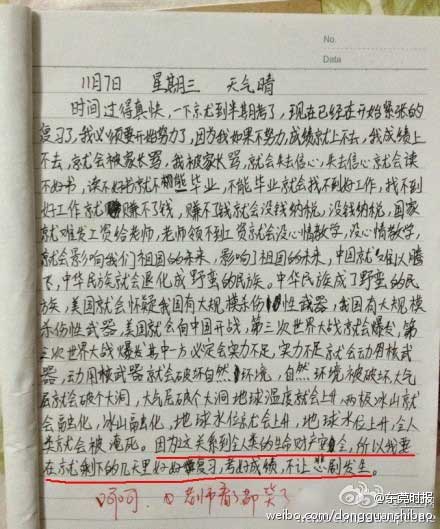 No.
Data
11月7日 星期三 天气晴
时间过得真快，一下就到半期考了，现在已经在开始紧张的
复习了，我必须要开始努力了，因为我如果不努力，成绩就上不去，我成绩上
不去，就会被家长骂，我被家长骂，就会失去信心，失去信心就会读
不好书，读不好书就不能毕业，不能毕业就会找不到好工作，找不到
好工作就赚不了钱，赚不了钱就会没钱纳税，没钱纳税，国家
就难发工资给老师，老师领不到工资就会没心情教学，没心情教学，
就会影响我们祖国的未来，影响了祖国的未来，中国就难以腾
飞，中华民族就会退化成野蛮的民族。中华民族成了野蛮的民
族，美国就会怀疑我国有大规模杀伤性武器，我国有大规
模杀伤性武器，美国就会向中国开战，第三次世界大战就会爆发，第
三次世界大战爆发其中一方必定会实力不足，实力不足就会动用核武
器，动用核武器就会破坏自然环境，自然环境被破坏，大气
层就会破个大洞，大气层破个大洞地球温度就会上升，两极冰山就
会融化，冰山融化，地球水位就会上升，地球水位上升，全人
类就会被淹死。因为这关系到全人类的生命财产安全，所以我要
在就剩下的几天里好好复习，考好成绩，不让悲剧发生。
呵呵 老师看了都笑了
@东莞时报
weibo.com/dongguanshibao